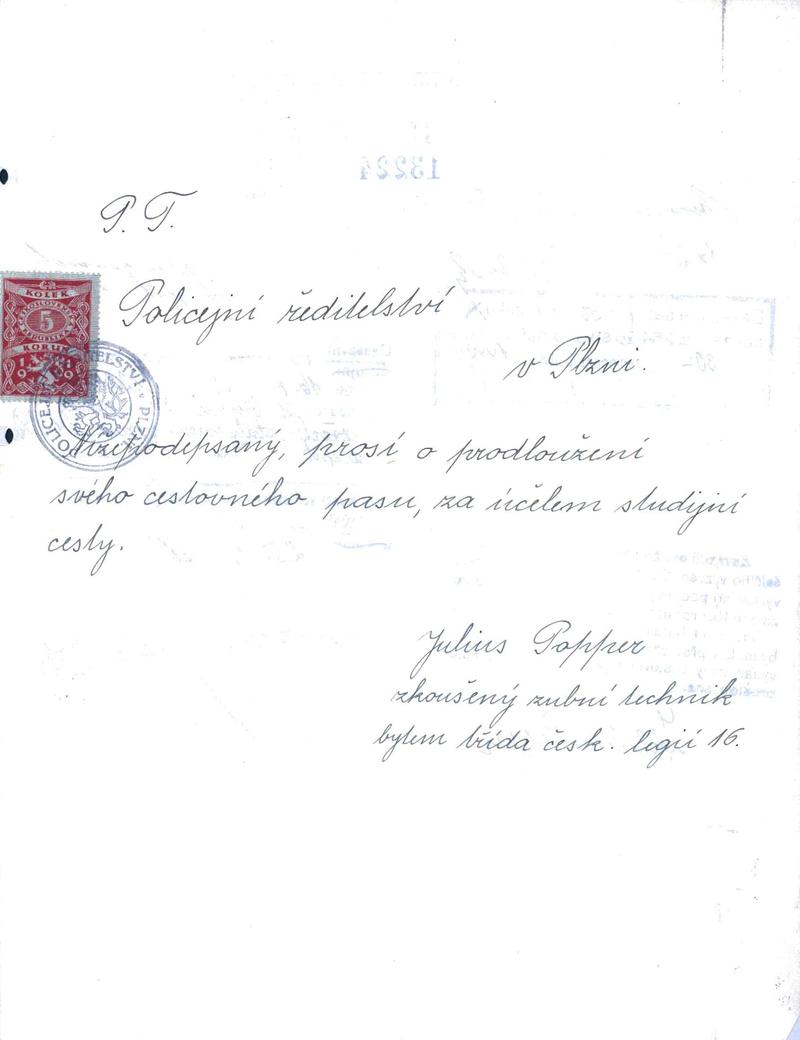 13224
P. T.
Policejní ředitelství
v Plzni.
KOLEK
5
KORUN
POLICEJNÍ ŘEDITELSTVÍ v PLZNI
Nížepodepsaný, prosí o prodloužení
svého cestovného pasu, za účelem studijní
cesty.
Julius Popper
zkoušený zubní technik
bytem třída česk. legií 16.